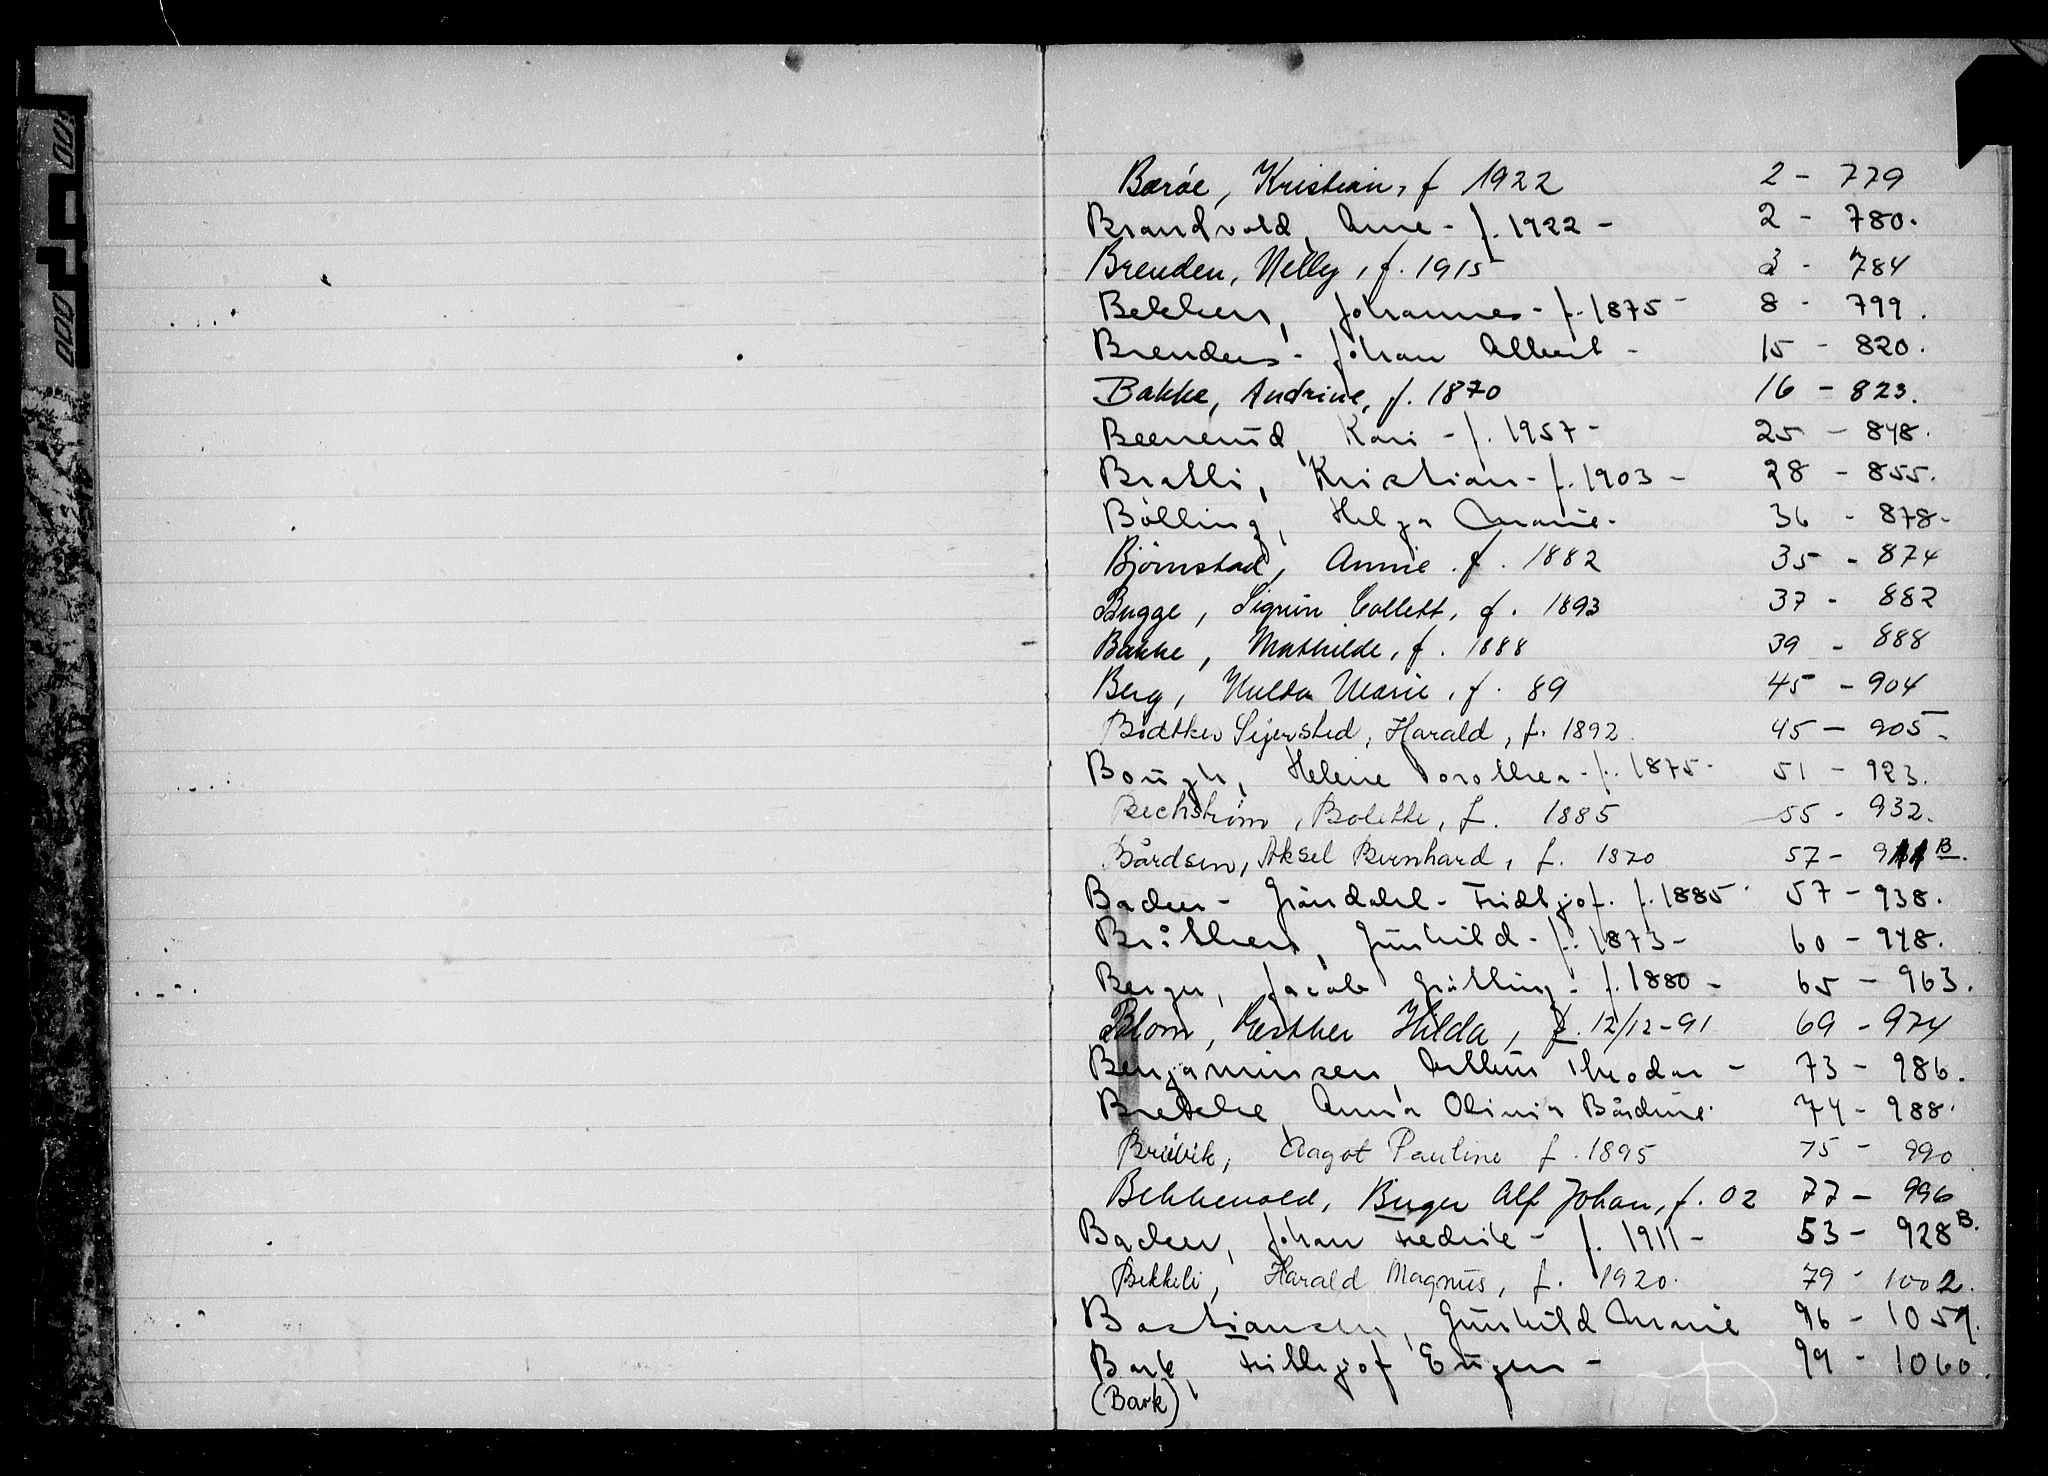 Bærøe, Kristian, f 1922 2 - 779
Brandvold, Arne - f. 1922 - 2 - 780.
Brenden, Nelly, f. 1915 3 - 784
Bekken, Johannes - f. 1875 - 8 - 799.
Brenden - Johan Albert - 15 - 820.
Bakke, Andrine, f. 1870 16 - 823.
Kari - f. 1957 - 25 - 848.
Bratli, Kristian - f. 1903 - 28 - 855.
Bølling, Helga Marie - 36 - 878 -
Bjørnstad, Annie. f. 1882 35 - 874
Bugge, Sigrun Collett, f. 1893 37 - 882
Bakke, Mathilde, f. 1888 39 - 888
Berg, Hulda Marie, f. 89 45 - 904
Bødtker Sejersted, Harald, f. 1892. 45 - 905 -
Bough, Helene Dorothea - f. 1875 - 51 - 923.
Bechstrøm, Bolette, f. 1885 55 - 932.
Bårdsen, Aksel Bernhard, f. 1870 57 - B.
Backer - Grøndahl - Fridtjof. f. 1885 - 57 - 938.
Bråthen, Gunhild - f. 1873 - 60 - 948.
Berger, Jacob - f. 1880 - 65 - 963.
Blom, Esther Hilda, f. 12/12-91 69 - 974
Benjaminsen, Arthur Theodor - 73 - 986.
Bredeke, Anna Olivia Bårdine. 74 - 988.
Breivik, Aagot Pauline f. 1895 75 - 990
Bekkevold, Birger Alf Johan, f. 02 77 - 996
Backer, Johan Fredrik - f. 1911 - 53 - 928 B.
Bekkeli, Harald Magnus, f. 1920. 79 - 1002.
Bastiansen, Gunhild Marie 96 - 1057.
Bark, Frithjof Eugen - 99 - 1060.
(Bark)